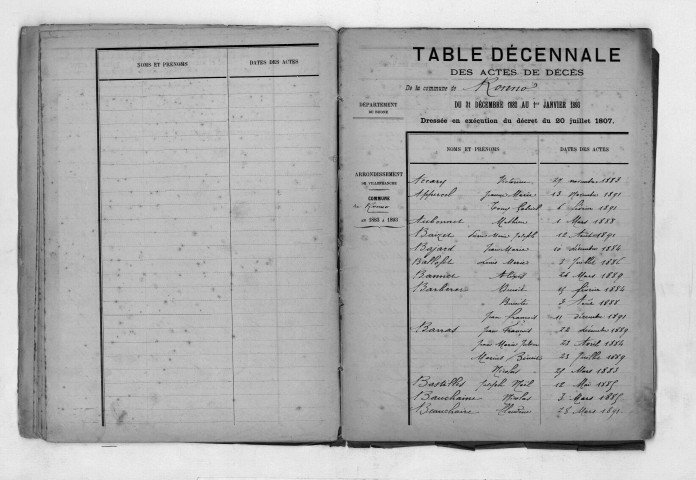 NOMS ET PRÉNOMS DATES DES ACTES
TABLE DÉCENNALE
DES ACTES DE DÉCÈS
De la commune de Ronno
DU 31 DÉCEMBRE 1882 AU 1er JANVIER 1893
Dressée en exécution du décret du 20 juillet 1807.
DÉPARTEMENT
DU RHONE
ARRONDISSEMENT
DE VILLEFRANCHE
COMMUNE
de Ronno
de 1883 à 1893
NOMS ET PRÉNOMS DATES DES ACTES
Victorine 29 novembre 1883
Appercel Jeanne Marie 13 Novembre 1891
6 février 1891
Aubonnet Mathieu 1 Mars 1888
Baizet Joseph 12 Août 1891
Bajard Jean Marie 10 décembre 1884
Ballofet Louis Marie 3 Juillet 1886
Bannier 26 Mars 1889
Barberet Benoit 15 février 1884
Benoite 2 Août 1888
Jean François 11 décembre 1891
Barras Jean François 22 décembre 1889
Jean Marie 28 Avril 1884
Marius 23 Juillet 1889
Nicolas 29 Mars 1883
Bastilles Joseph Noël 12 Mai 1885
Bauchaine Nicolas 3 Mars 1885
Beauchaire Claudine 25 Mars 1891